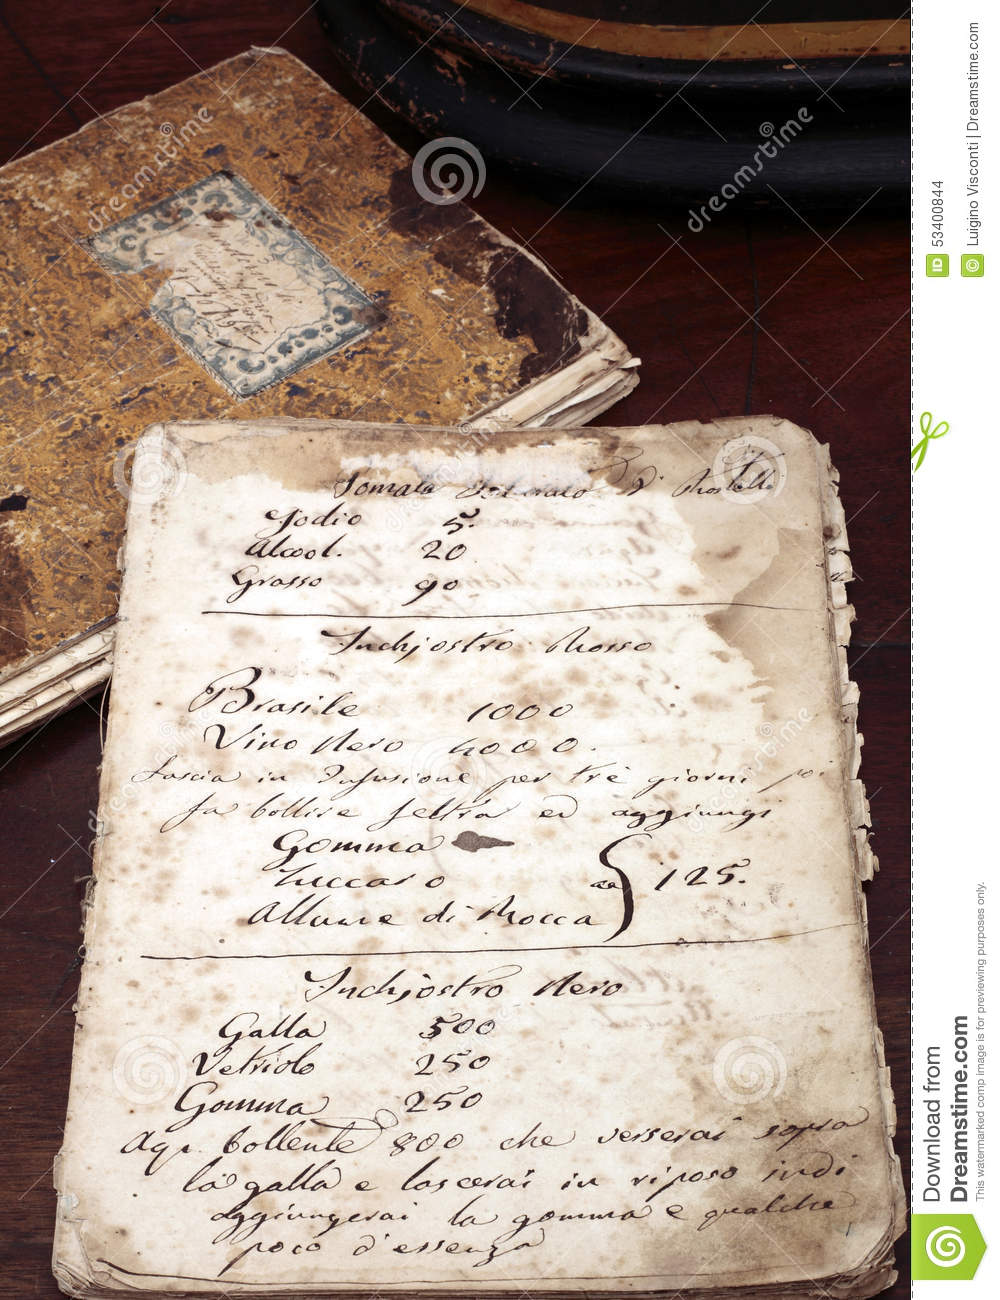 Pomata
Jodio 5.
Alcool. 20
Grasso 90
Inchjostro Rosso
Brasile 1000
Vino Nero 4000.
Lascia in Infusione per tre giorni poi
fa bollire feltra ed aggiungi
Gomma
Zuccaro aa 125.
Allume di Rocca
Inchjostro Nero
Galla 500
Vetriolo 250
Gomma 250
Aqa. bollente 800 che verserai sopra
la galla e lascerai in riposo indi
aggiungerai la gomma e qualche
poco d'essenza
dreamstime
dreamstime
dreamstime
dreamstime
dreamstime
dreamstime
dreamstime
ID 53400844
© Luigino Visconti | Dreamstime.com
Download from
Dreamstime.com
This watermarked comp image is for previewing purposes only.